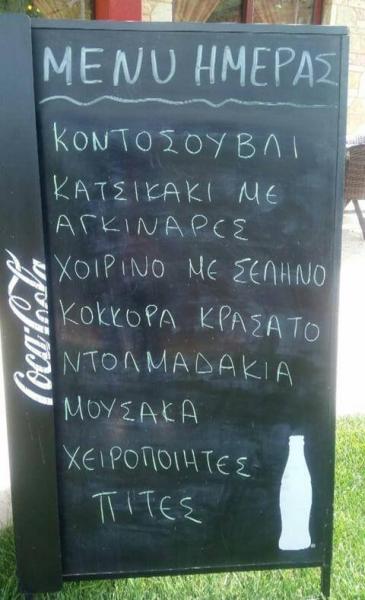 MENU ΗΜΕΡΑΣ
ΚΟΝΤΟΣΟΥΒΛΙ
ΚΑΤΣΙΚΑΚΙ ΜΕ
ΑΓΚΙΝΑΡΕΣ
ΧΟΙΡΙΝΟ ΜΕ ΣΕΛΗΝΟ
ΚΟΚΚΟΡΑ ΚΡΑΣΑΤΟ
ΝΤΟΛΜΑΔΑΚΙΑ
ΜΟΥΣΑΚΑ
ΧΕΙΡΟΠΟΙΗΤΕΣ
ΠΙΤΕΣ
Coca-Cola